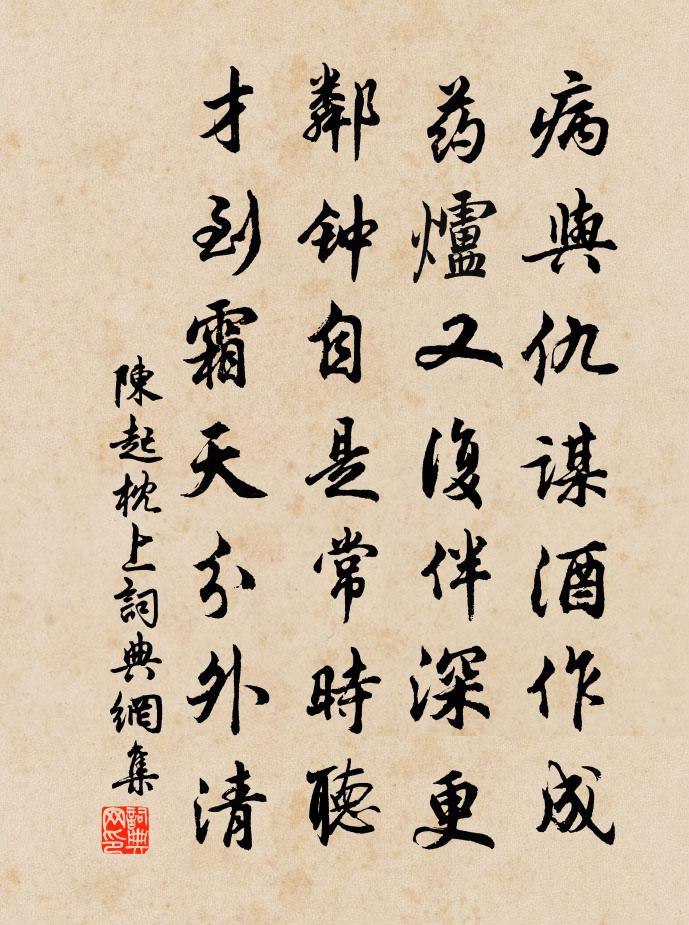 病與仇謀酒作成
药爐又復伴深更
鄰钟自是常時聽
才到霜天分外清
陳起枕上詞典網集
詞典
网印